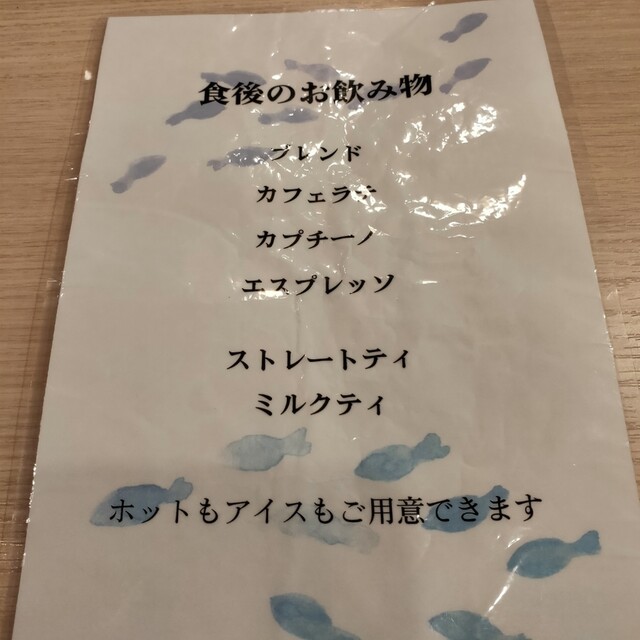 食後のお飲み物
ブレンド
カフェラテ
カプチーノ
エスプレッソ
ストレートティ
ミルクティ
ホットもアイスもご用意できます